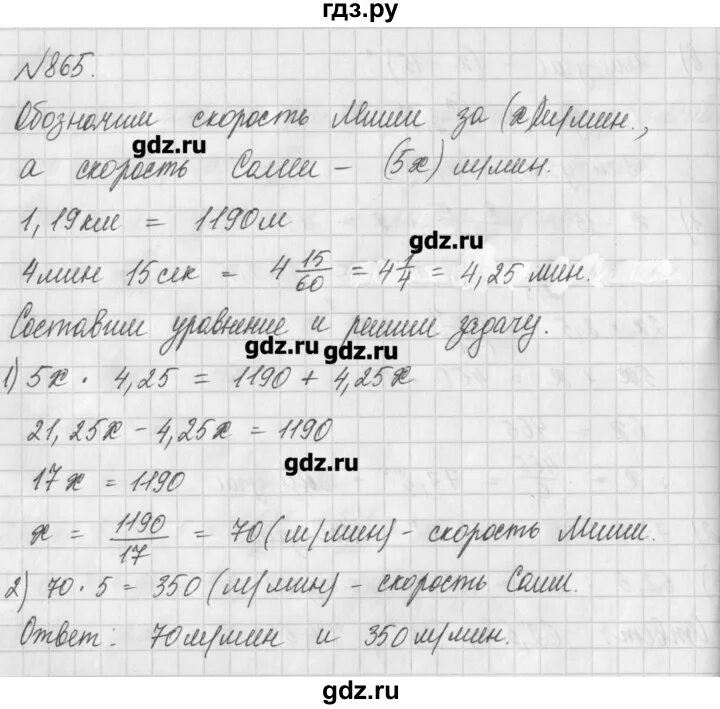 гдз.ру
№865.
Обозначим скорость Миши за (x)м/мин.,
gdz.ru
а скорость Саши – (5x) м/мин.
1,19км = 1190м
gdz.ru
4мин 15сек = 4 15/60 = 4 1/4 = 4,25 мин.
Составим уравнение и решим задачу.
gdz.ru gdz.ru
1) 5x · 4,25 = 1190 + 4,25x
21,25x – 4,25x = 1190
gdz.ru
17x = 1190
x = 1190/17 = 70 (м/мин) – скорость Миши.
2) 70 · 5 = 350 (м/мин) – скорость Саши.
Ответ: 70м/мин и 350м/мин.
gdz.ru